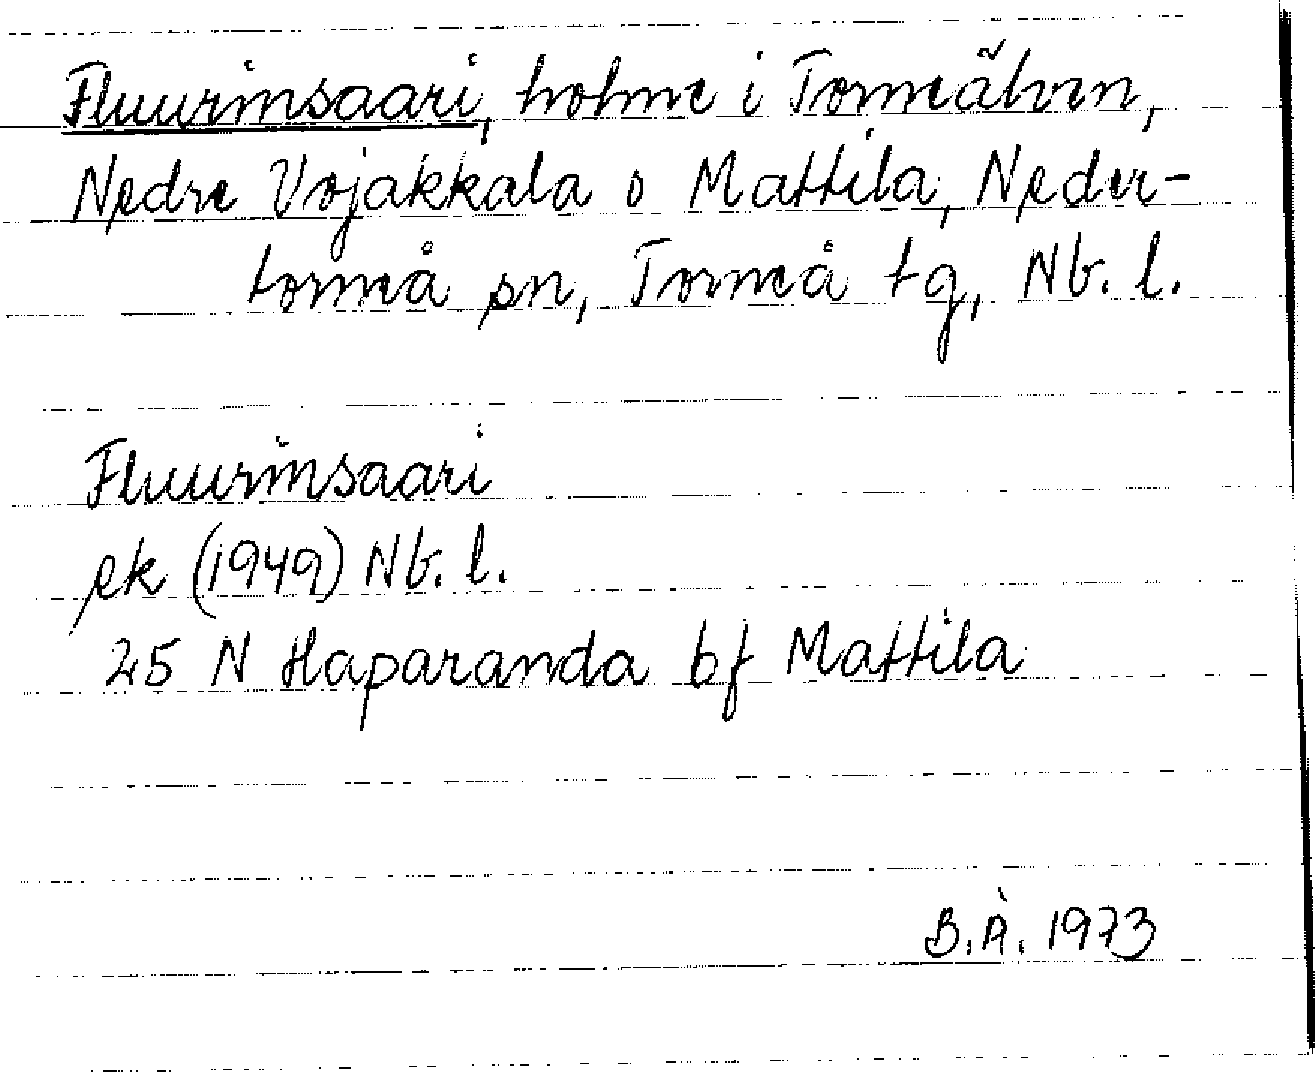 Fluurinsaari, holme i Torneälven,
Nedre Vojakkala o Mattila, Neder-
torneå sn, Torneå tg, Nb. l.
Fluurinsaari
ek (1949) Nb. l.
25 N Haparanda bf Mattila
B.Å. 1973